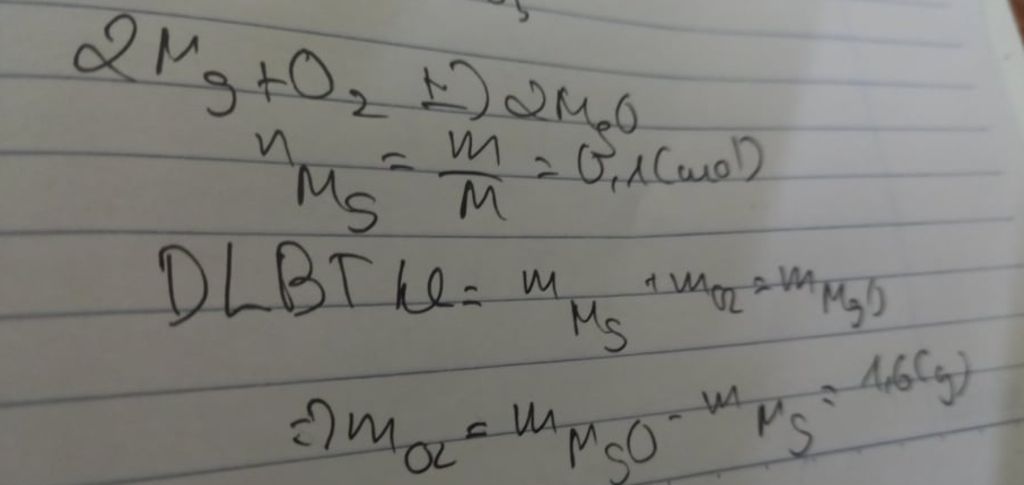 2Mg + O2 t=> 2MgO
nMg = m/M = 0,1 (mol)
DLBTKL = mMg + mO2 = mMgO
=> mO2 = mMgO - mMg = 1,6 (g)